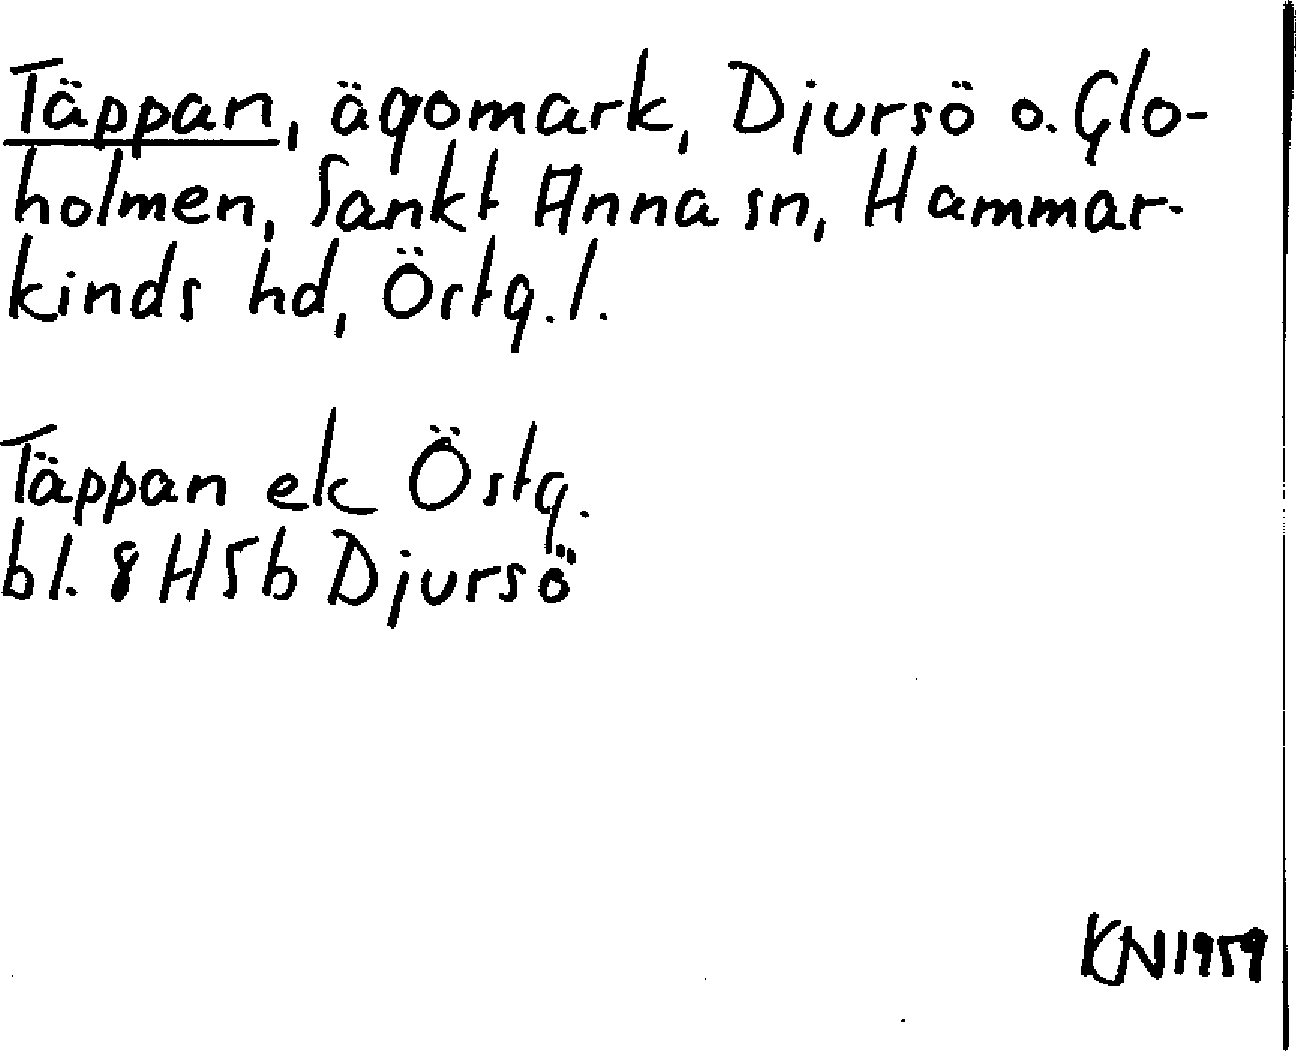 Täppan, ägomark, Djursö o. Glo-
holmen, Sankt Anna sn, Hammar-
kinds hd, Östg. l.
Täppan ek Östg.
bl. 8H5b Djursö
KN 1959